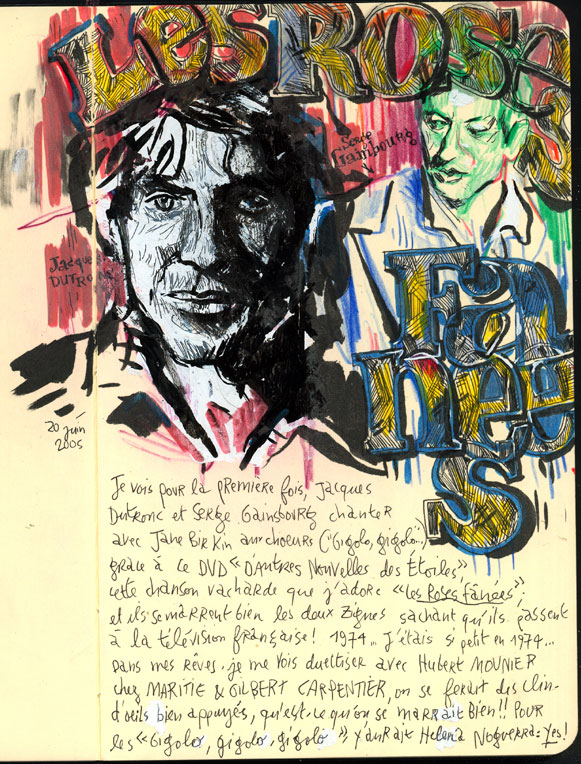 Les Roses
Fanées
Serge
Jambourg
Jacques
Dutronc
20 juin
2005
Je vois pour la première fois, Jacques
Dutronc et Serge Gainsbourg chanter
avec Jane Birkin aux choeurs ("Gigolo, gigolo"...)
grâce à ce DVD « D'AUTRES NOUVELLES DES ÉTOILES »
cette chanson vacharde que j'adore « Les Roses fânées »;
et ils se marrent bien les deux zignes sachant qu'ils passent
à la télévision française! 1974... J'étais si petit en 1974...
Dans mes rêves, je me vois duettiser avec Hubert MOUNIER
chez MARITIE & GILBERT CARPENTIER, on se ferait des clin-
d'oeils bien appuyés, qu'est-ce qu'on se marrait bien!! POUR
les « Gigolo, gigolo, gigolo », y'aurait Helena Noguerra: Yes!